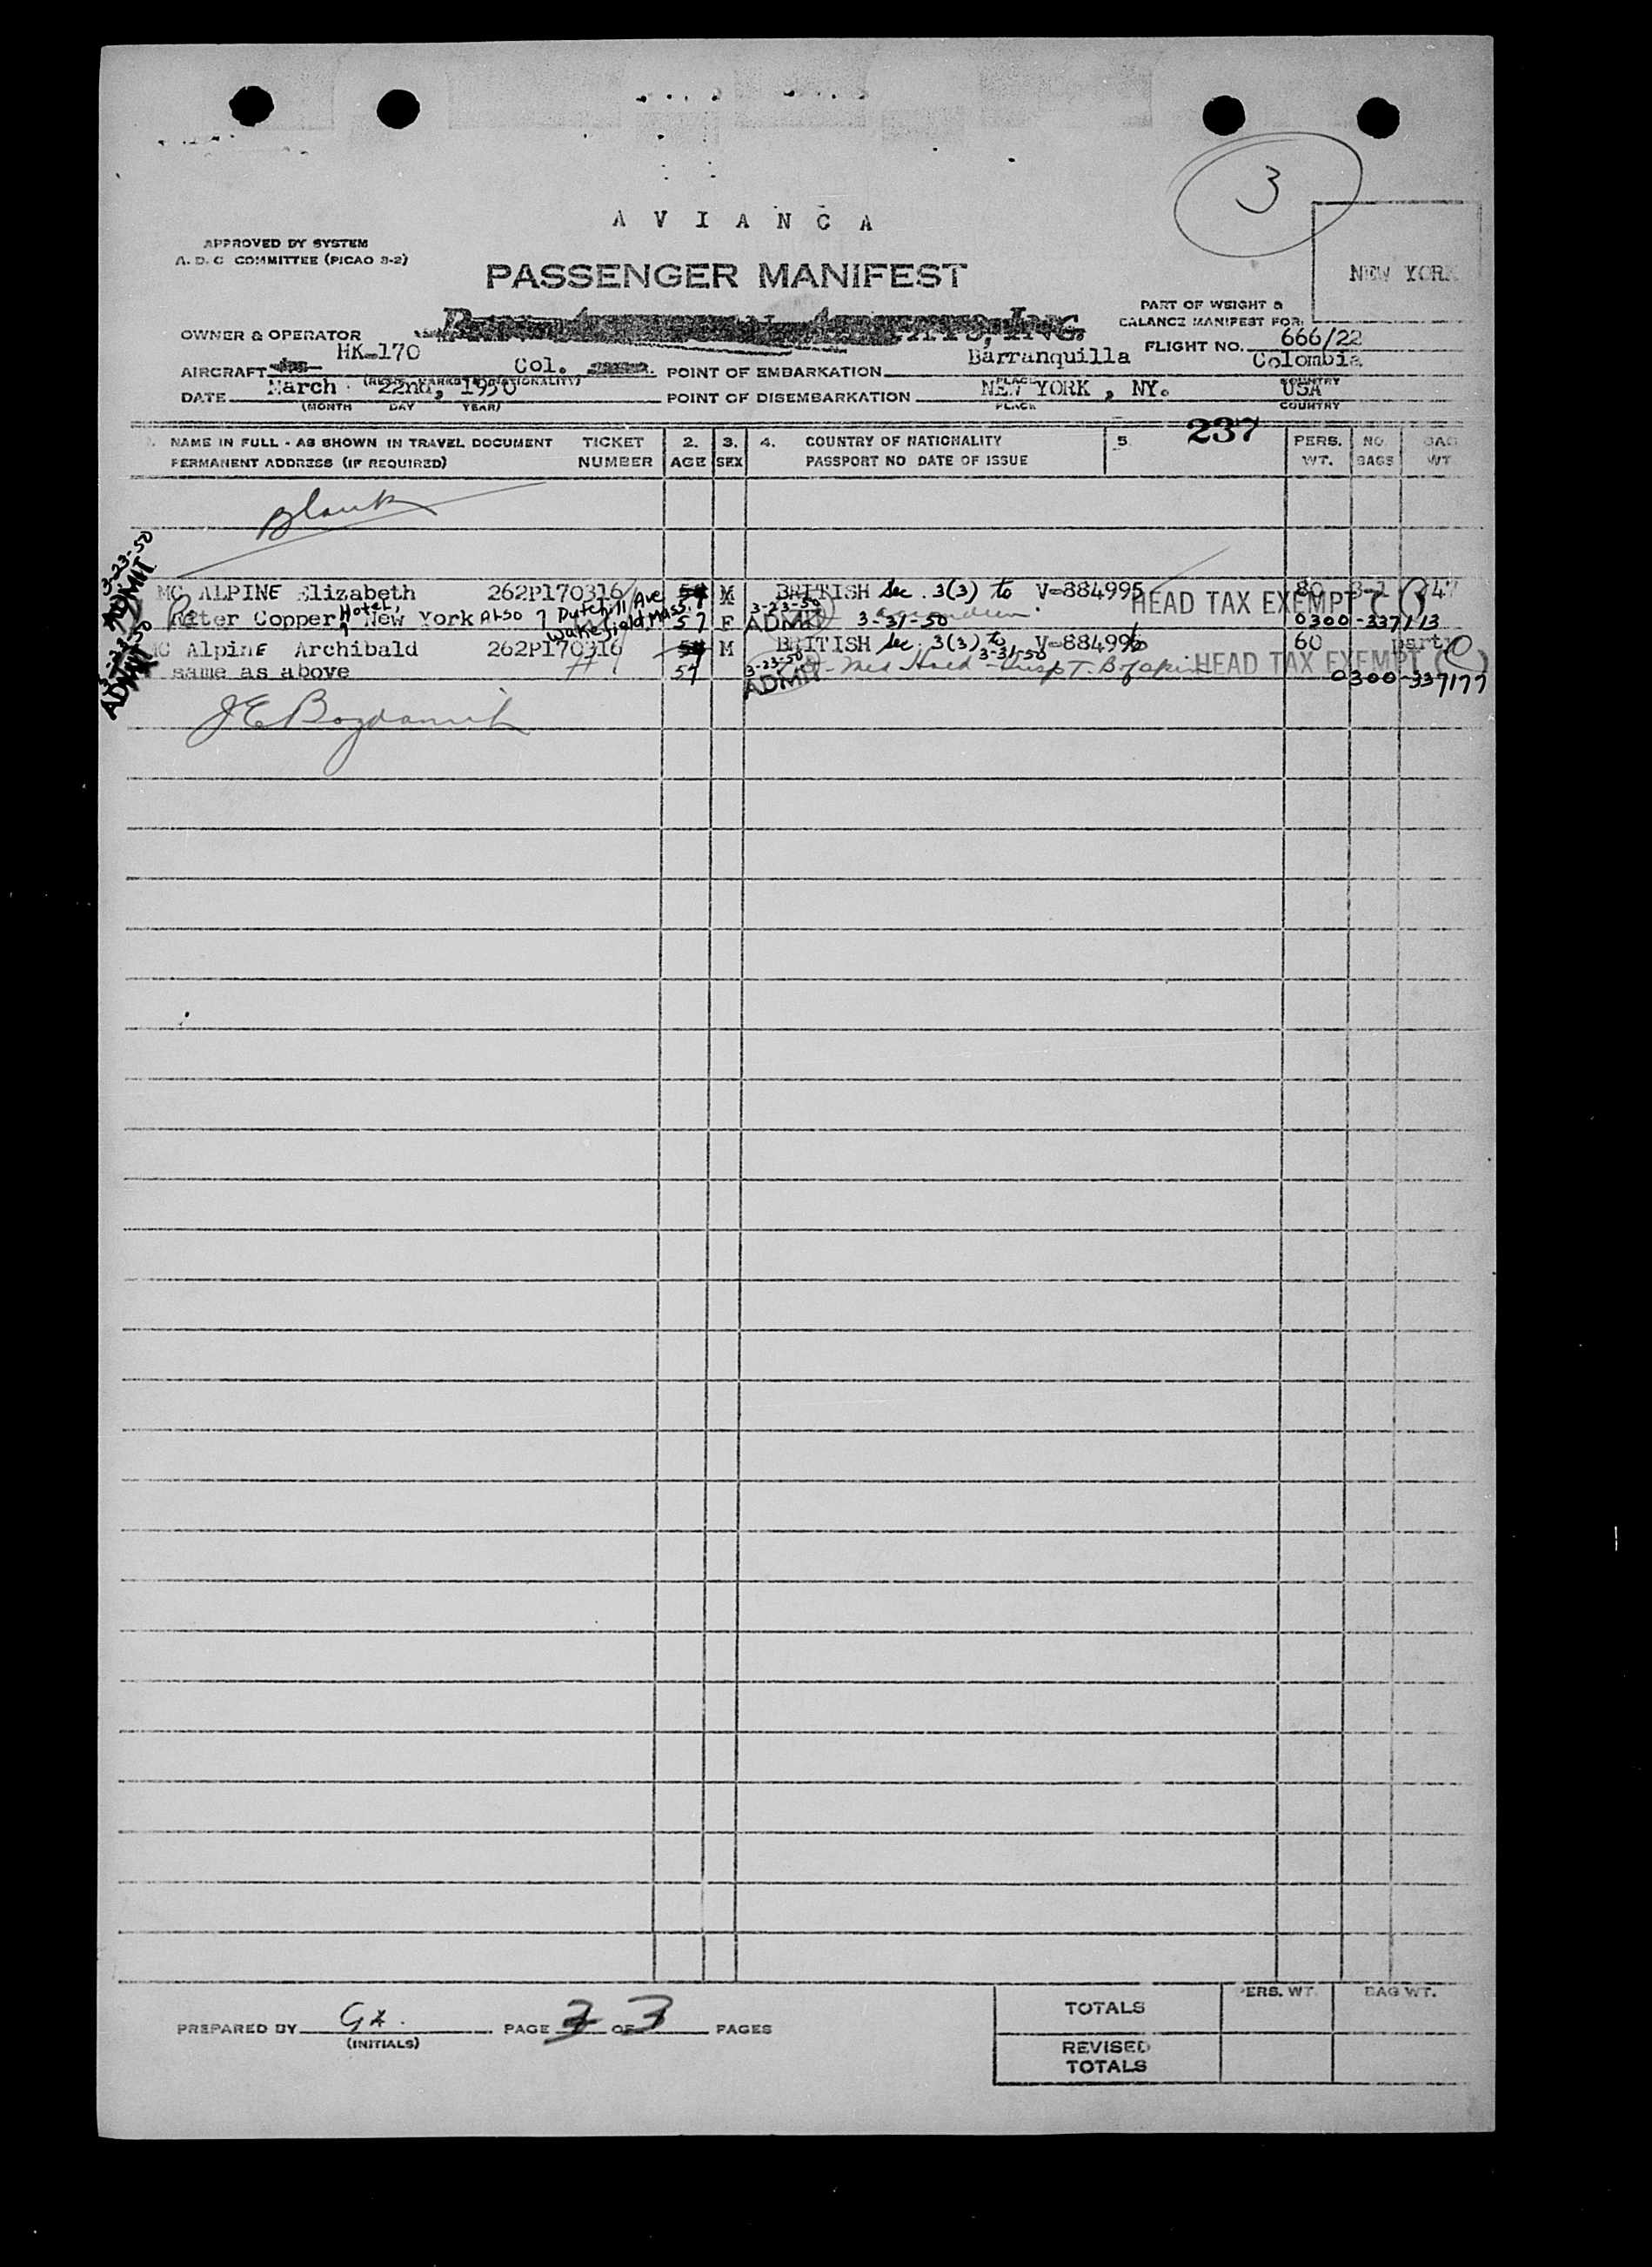 3
A V I A N C A
APPROVED BY SYSTEM
A. D. C COMMITTEE (PICAO 3-2)
PASSENGER MANIFEST
NEW YORK
PART OF WEIGHT &
BALANCE MANIFEST FOR:
OWNER & OPERATOR
FLIGHT NO. 666/22
AIRCRAFT HK-170 Col. POINT OF EMBARKATION Barranquilla Colombia
DATE March 22nd, 1950 POINT OF DISEMBARKATION NEW YORK , NY. USA
(MONTH DAY YEAR) PLACE COUNTRY
237
NAME IN FULL - AS SHOWN IN TRAVEL DOCUMENT TICKET 2. 3. 4. COUNTRY OF NATIONALITY 5. PERS. NO. BAG
PERMANENT ADDRESS (IF REQUIRED) NUMBER AGE SEX PASSPORT NO DATE OF ISSUE WT. BAGS WT
Blank
3-23-50 ADMIT
MC ALPINE Elizabeth 262P170316 54 M BRITISH Sec. 3(3) to V-884995 80 3-1 47
HEAD TAX EXEMPT ( )
Riter Copper Hotel, New York Also 7 Dutchill Ave Wakefield, Mass. 57 F 3-23-50 ADMIT 3-31-50 0300-337113
3-23-50 ADMIT
MC Alpine Archibald 262P170316 54 M BRITISH Sec. 3(3) to 3-31-50 V-884996 60 party
same as above 57 3-23-50 ADMIT Med Hold HEAD TAX EXEMPT ( )
0300-337177
PREPARED BY PAGE 3 OF 3 PAGES
(INITIALS)
PERS. WT. BAG WT.
TOTALS
REVISED
TOTALS